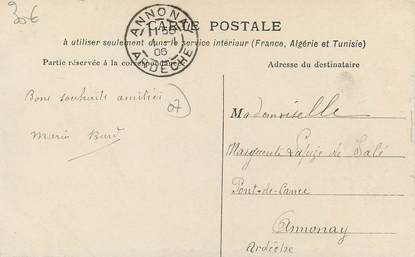 35€
CARTE POSTALE
à utiliser seulement dans le service intérieur (France, Algérie et Tunisie)
Partie réservée à la correspondance
Adresse du destinataire
ANNONAY
06
ARDÈCHE
Bons souhaits amitiés
07
Maria
Mademoiselle
Marguerite Lapize de Salé
Pont-de-Cance
Annonay
Ardèche